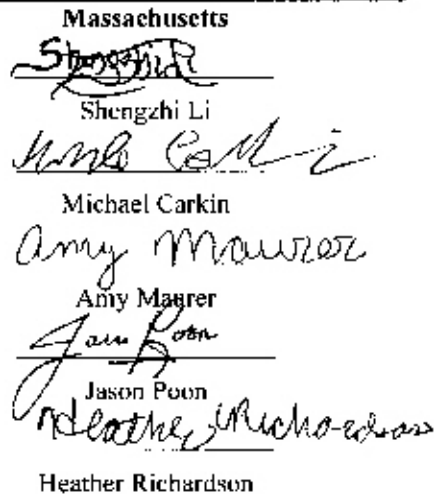 Massachusetts
Shengzhi Li
Michael Carkin
Amy Maurer
Amy Maurer
Jason Poon
Jason Poon
Heather Richardson
Heather Richardson